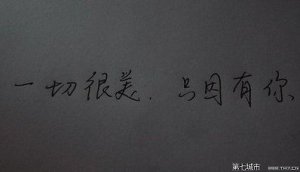 一切很美，只因有你、
第七城市
WWW.TH7.CN